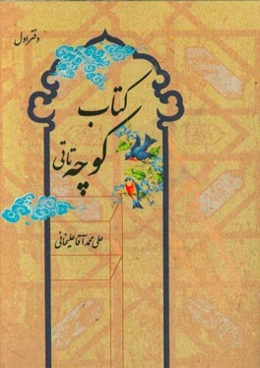 دفتر اول
کتاب
کوچه تاتی
علی محمد آقا علیخانی